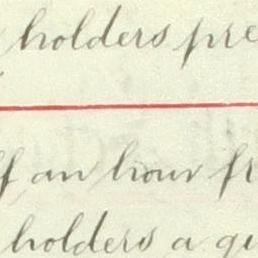 holders pre
f an hour fr
holders a qu